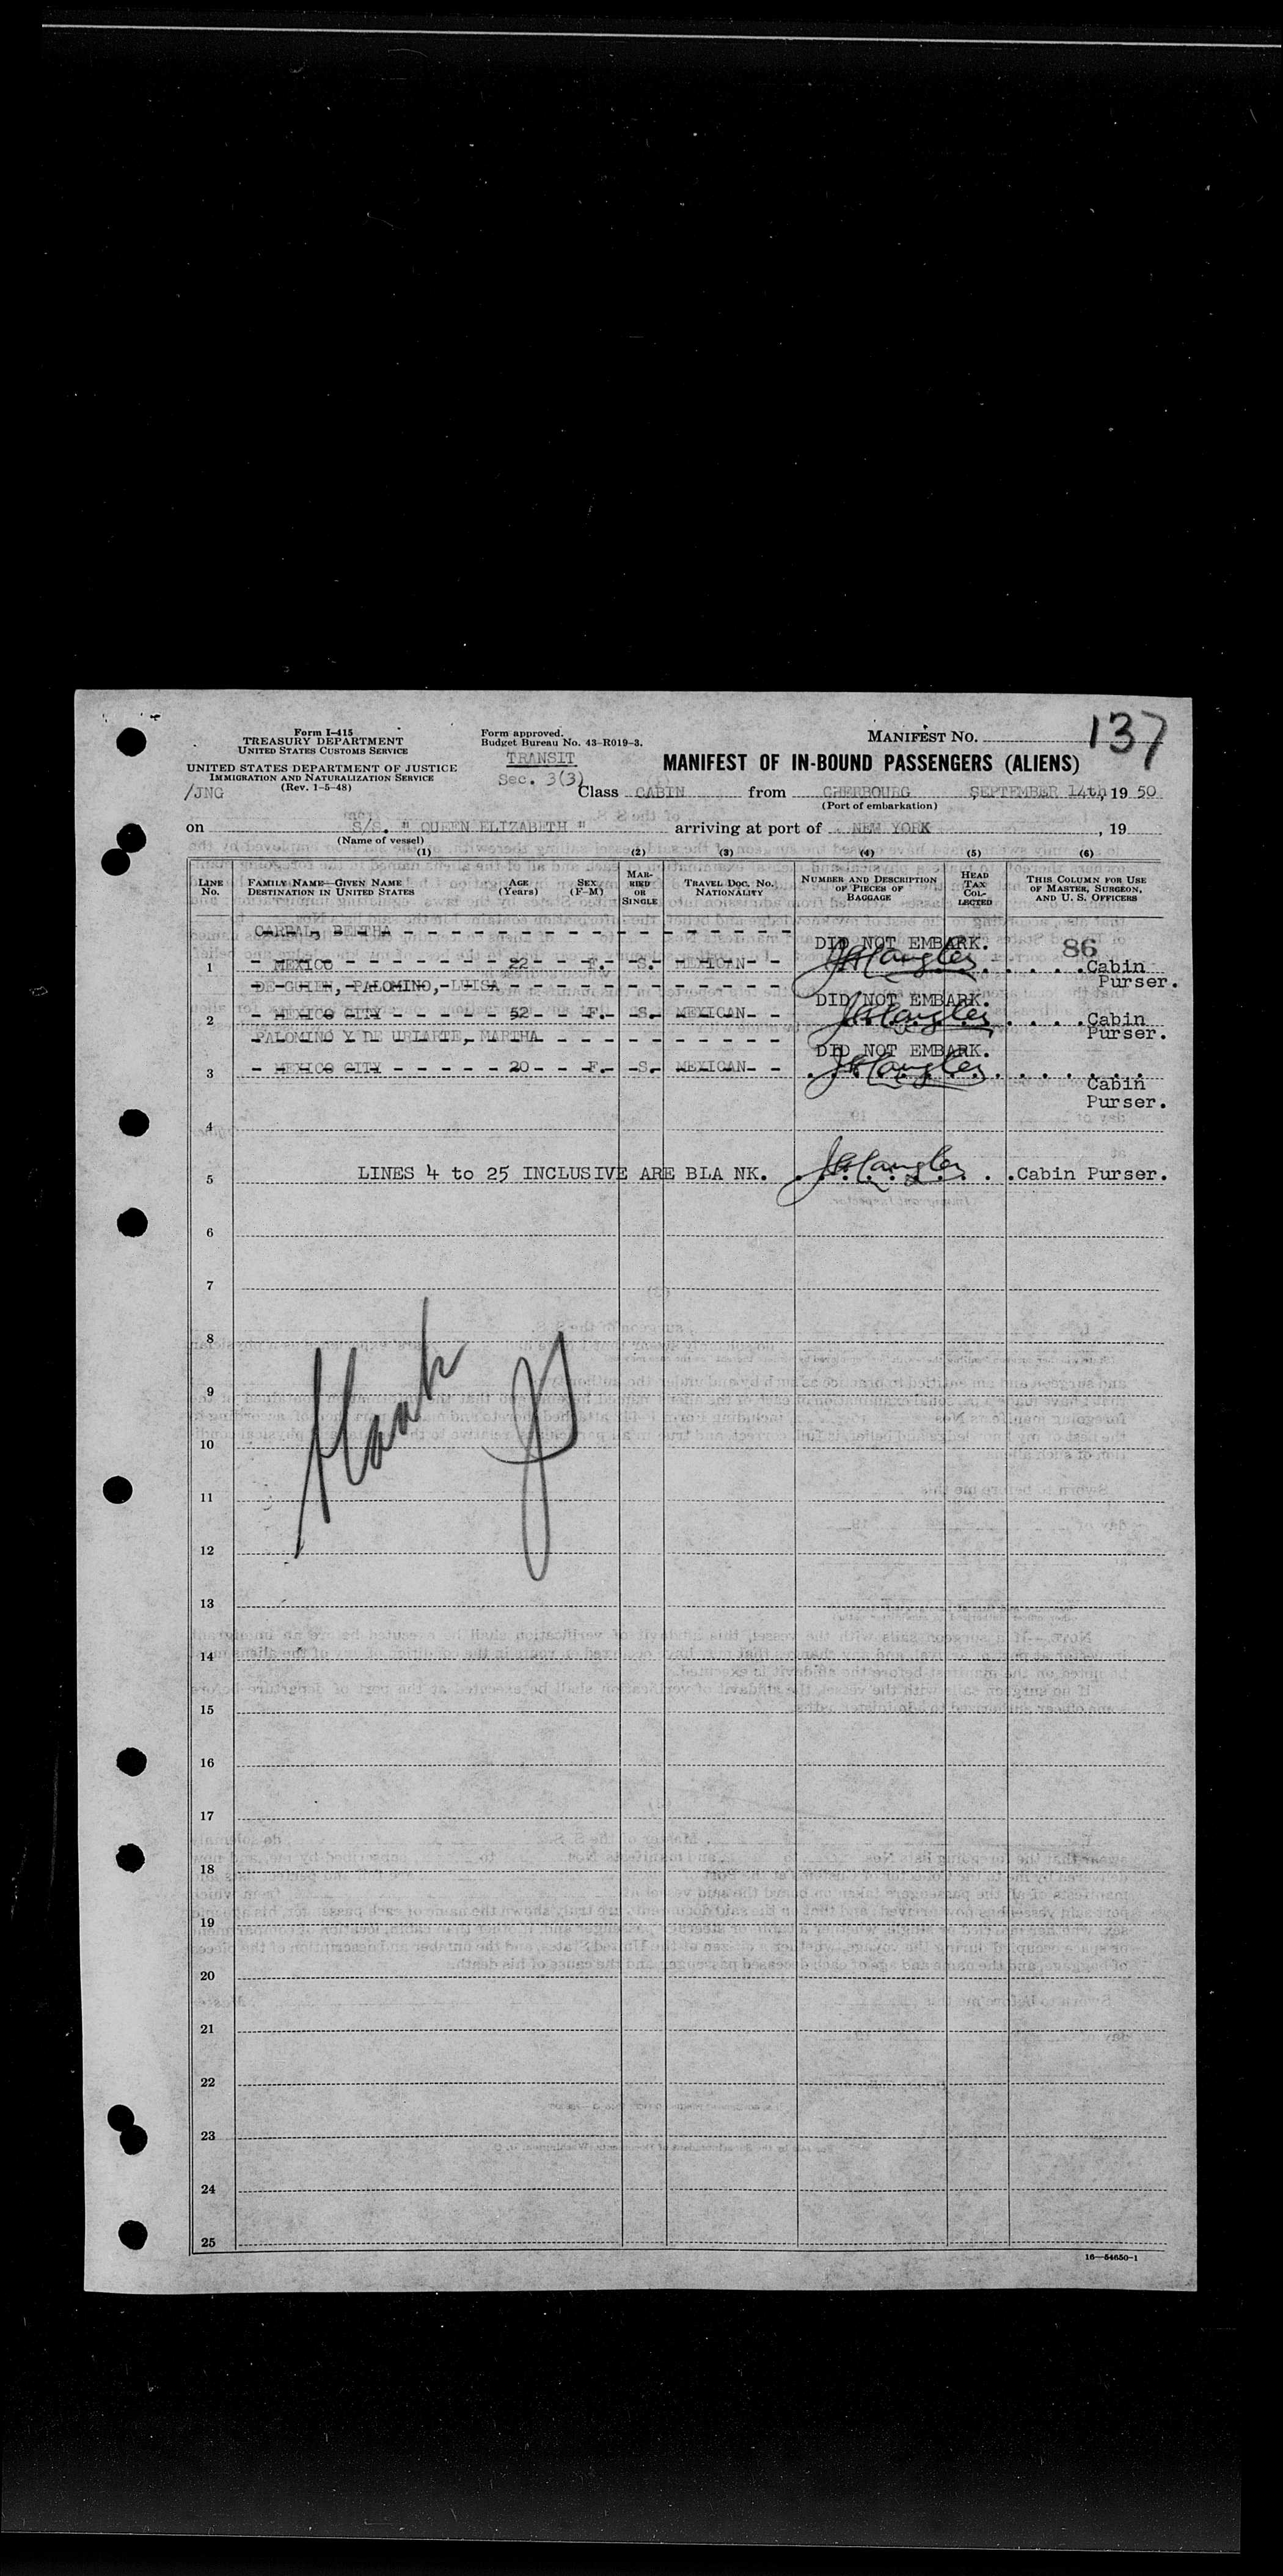 137
Form I-415
TREASURY DEPARTMENT
UNITED STATES CUSTOMS SERVICE
UNITED STATES DEPARTMENT OF JUSTICE
IMMIGRATION AND NATURALIZATION SERVICE
(Rev. 1-5-48)
/JNG
Form approved.
Budget Bureau No. 43-R019-3.
TRANSIT
Sec. 3(3)
MANIFEST NO.
MANIFEST OF IN-BOUND PASSENGERS (ALIENS)
Class CABIN from CHERBOURG SEPTEMBER 14th, 19 50
(Port of embarkation)
on S/S. " QUEEN ELIZABETH " arriving at port of NEW YORK , 19
(Name of vessel)
(1) (2) (3) (4) (5) (6)
LINE NO. FAMILY NAME—GIVEN NAME DESTINATION IN UNITED STATES AGE (Years) SEX (F-M) MARRIED OR SINGLE TRAVEL DOC. NO. NATIONALITY NUMBER AND DESCRIPTION OF PIECES OF BAGGAGE HEAD TAX COLLECTED THIS COLUMN FOR USE OF MASTER, SURGEON, AND U. S. OFFICERS
CARRAL, BERTHA
DID NOT EMBARK. 86
1 MEXICO 22 F. S. MEXICAN Cabin Purser.
DE GUIEN, PALOMINO, LUISA
DID NOT EMBARK.
2 MEXICO CITY 52 F. S. MEXICAN Cabin Purser.
PALOMINO Y DE URIARTE, MARTHA
DID NOT EMBARK.
3 MEXICO CITY 20 F. S. MEXICAN
Cabin Purser.
4
5 LINES 4 to 25 INCLUSIVE ARE BLA NK. Cabin Purser.
6
7
8
9
10
11
12
13
14
15
16
17
18
19
20
21
22
23
24
25
16—54650-1